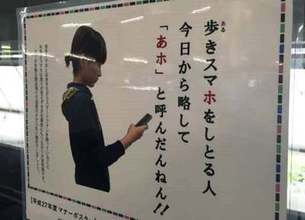 歩きスマホをしとる人
ある
今日から略して
「あホ」と呼んだんねん!!
【平成27年度 マナーポスタ